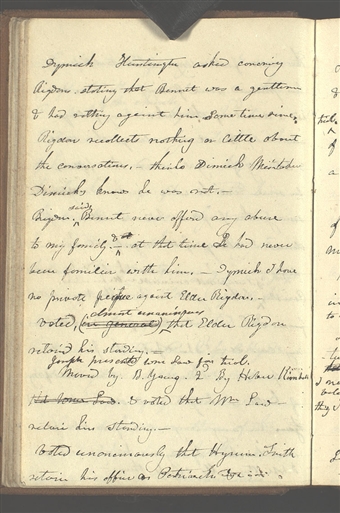 Dymick Huntington asked concerning
Rigdon. stating that Bennet was a gentleman
& had nothing against him. Some time since.
Rigdon recollects nothing or little about
the conversations. - thinks Dimick Mistaken
Dimick knows he was not. -
Rigdon. said Bennet never offerd any abuse
to my family. at that time he had never
been familier with him. - Dymick I have
no private pique against Elder Rigdon. -
voted, (in general) almost unanimous that Elder Rigdon
retain his standing. -
Joseph presents Wm Law for trial.
Moved by. B. Young. 2d By Heber
& voted that Wm Law
retain his standing -
Voted unanimously that Hyrum Smith
retain his office as Patriarch